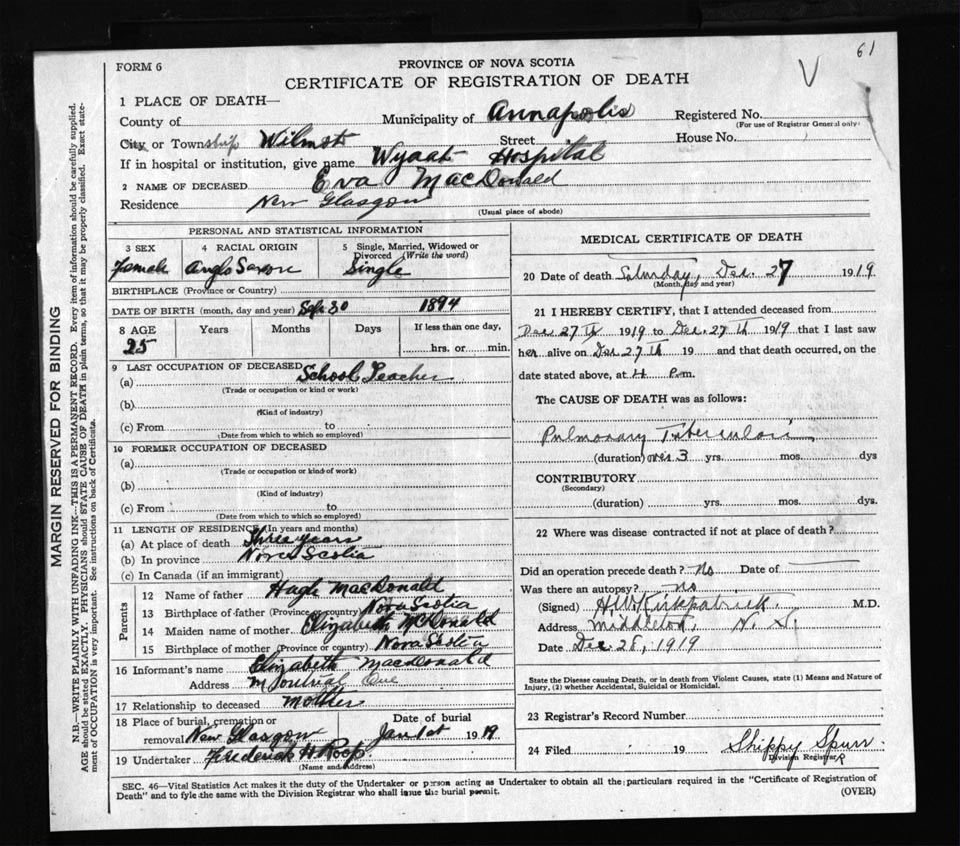 61
V
FORM 6
PROVINCE OF NOVA SCOTIA
CERTIFICATE OF REGISTRATION OF DEATH
1 PLACE OF DEATH—
County of Municipality of Annapolis Registered No.
(For use of Registrar General only)
City or Township Wilmot Street House No.
If in hospital or institution, give name Wyaat Hospital
2 NAME OF DECEASED Eva MacDonald
Residence New Glasgow
(Usual place of abode)
PERSONAL AND STATISTICAL INFORMATION
3 SEX 4 RACIAL ORIGIN 5 Single, Married, Widowed or Divorced (Write the word)
Female Anglo Saxon Single
BIRTHPLACE (Province or Country)
DATE OF BIRTH (month, day and year) Sept 30 1894
8 AGE Years Months Days If less than one day,
25 hrs. or min.
9 LAST OCCUPATION OF DECEASED School Teacher
(a)
(Trade or occupation or kind or work)
(b)
(Kind of industry)
(c) From to
(Date from which to which so employed)
10 FORMER OCCUPATION OF DECEASED
(a)
(Trade or occupation or kind of work)
(b)
(Kind of industry)
(c) From to
(Date from which to which so employed)
11 LENGTH OF RESIDENCE (In years and months)
(a) At place of death Three years
(b) In province Nova Scotia
(c) In Canada (if an immigrant)
Parents
12 Name of father Hugh MacDonald
13 Birthplace of father (Province or country) Nova Scotia
14 Maiden name of mother Elizabeth McDonald
15 Birthplace of mother (Province or country) Nova Scotia
16 Informant's name Elizabeth MacDonald
Address Montreal Que
17 Relationship to deceased Mother
18 Place of burial, cremation or removal New Glasgow Date of burial Jan 1st 1919
19 Undertaker Frederick H Roop
(Name and Address)
MEDICAL CERTIFICATE OF DEATH
20 Date of death Saturday, Dec. 27 1919
(Month, day and year)
21 I HEREBY CERTIFY, that I attended deceased from
Dec 27th 1919 to Dec. 27th 1919 that I last saw
her alive on Dec 27th 19 and that death occurred, on the
date stated above, at 4 P.m.
The CAUSE OF DEATH was as follows:
Pulmonary Tuberculosis
(duration) over 3 yrs. mos. dys
CONTRIBUTORY
(Secondary)
(duration) yrs. mos. dys.
22 Where was disease contracted if not at place of death?
Did an operation precede death? No Date of
Was there an autopsy? no
(Signed) H.W. Kirkpatrick M.D.
Address Middleton, N. S.
Date Dec. 28, 1919
State the Disease causing Death, or in death from Violent Causes, state (1) Means and Nature of
Injury, (2) whether Accidental, Suicidal or Homicidal.
23 Registrar's Record Number
24 Filed 19 Shippy Spurr
Division Registrar
SEC. 46—Vital Statistics Act makes it the duty of the Undertaker or person acting as Undertaker to obtain all the particulars required in the "Certificate of Registration of
Death" and to fyle the same with the Division Registrar who shall issue the burial permit.
(OVER)
MARGIN RESERVED FOR BINDING
N.B.—WRITE PLAINLY WITH UNFADING INK—THIS IS A PERMANENT RECORD. Every item of information should be carefully supplied.
AGE should be stated EXACTLY. PHYSICIANS should STATE CAUSE OF DEATH in plain terms, so that it may be properly classified. Exact state-
ment of OCCUPATION is very important. See instructions on back of Certificate.